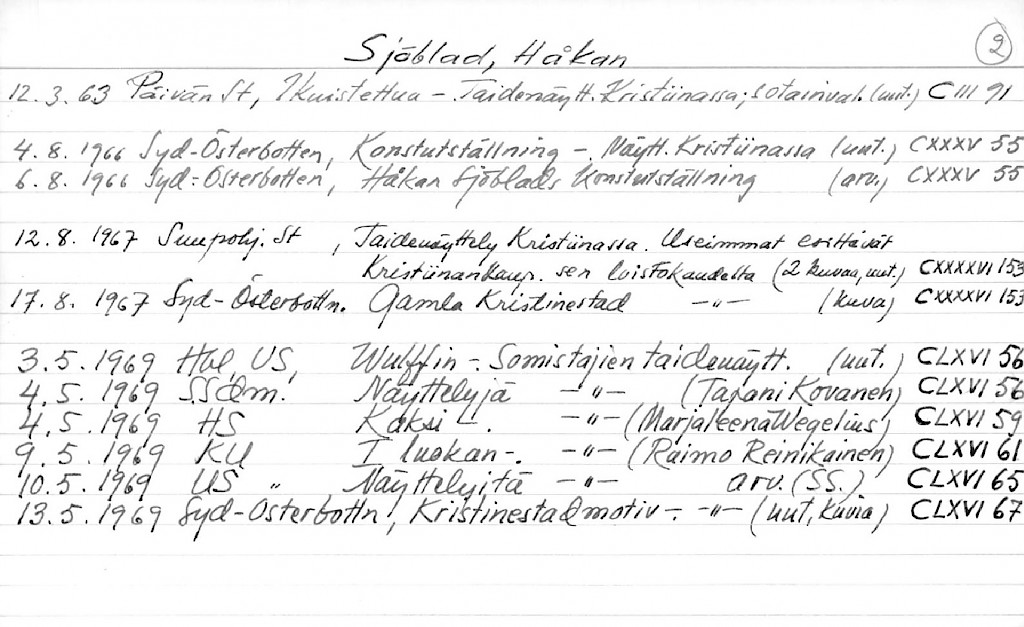 Sjöblad, Håkan 2
12.3.63 Päivän St, Ikuistettua - Taidenäytt. Kristiinassa; sotainval. (uut.) CIII 91
4.8.1966 Syd-Österbotten, Konstutställning -. Näytt. Kristiinassa (uut.) CXXXV 55
6.8.1966 Syd-Österbotten, Håkan Sjöblads Konstutställning (arv.) CXXXV 55
12.8.1967 Suupohj. St, Taidenäyttely Kristiinassa. Useimmat esittävät
Kristiinankaup. sen loistokaudelta (2 kuvaa, uut.) CXXXXVI 153
17.8.1967 Syd-Österbottn. Gamla Kristinestad -"- (kuva) CXXXXVI 153
3.5.1969 Hbl, US, Wulffin -. Somistajien taidenäytt. (uut.) CLXVI 56
4.5.1969 SSdm. Näyttelyjä -"- (Tapani Kovanen) CLXVI 56
4.5.1969 HS Kaksi -. -"- (Marjaleena Wegelius) CLXVI 59
9.5.1969 KU I luokan -. -"- (Raimo Reinikainen) CLXVI 61
10.5.1969 US " Näyttelyitä -"- arv. (SS.) CLXVI 65
13.5.1969 Syd-Österbottn, Kristinestadmotiv -. -"- (uut, kuvia) CLXVI 67